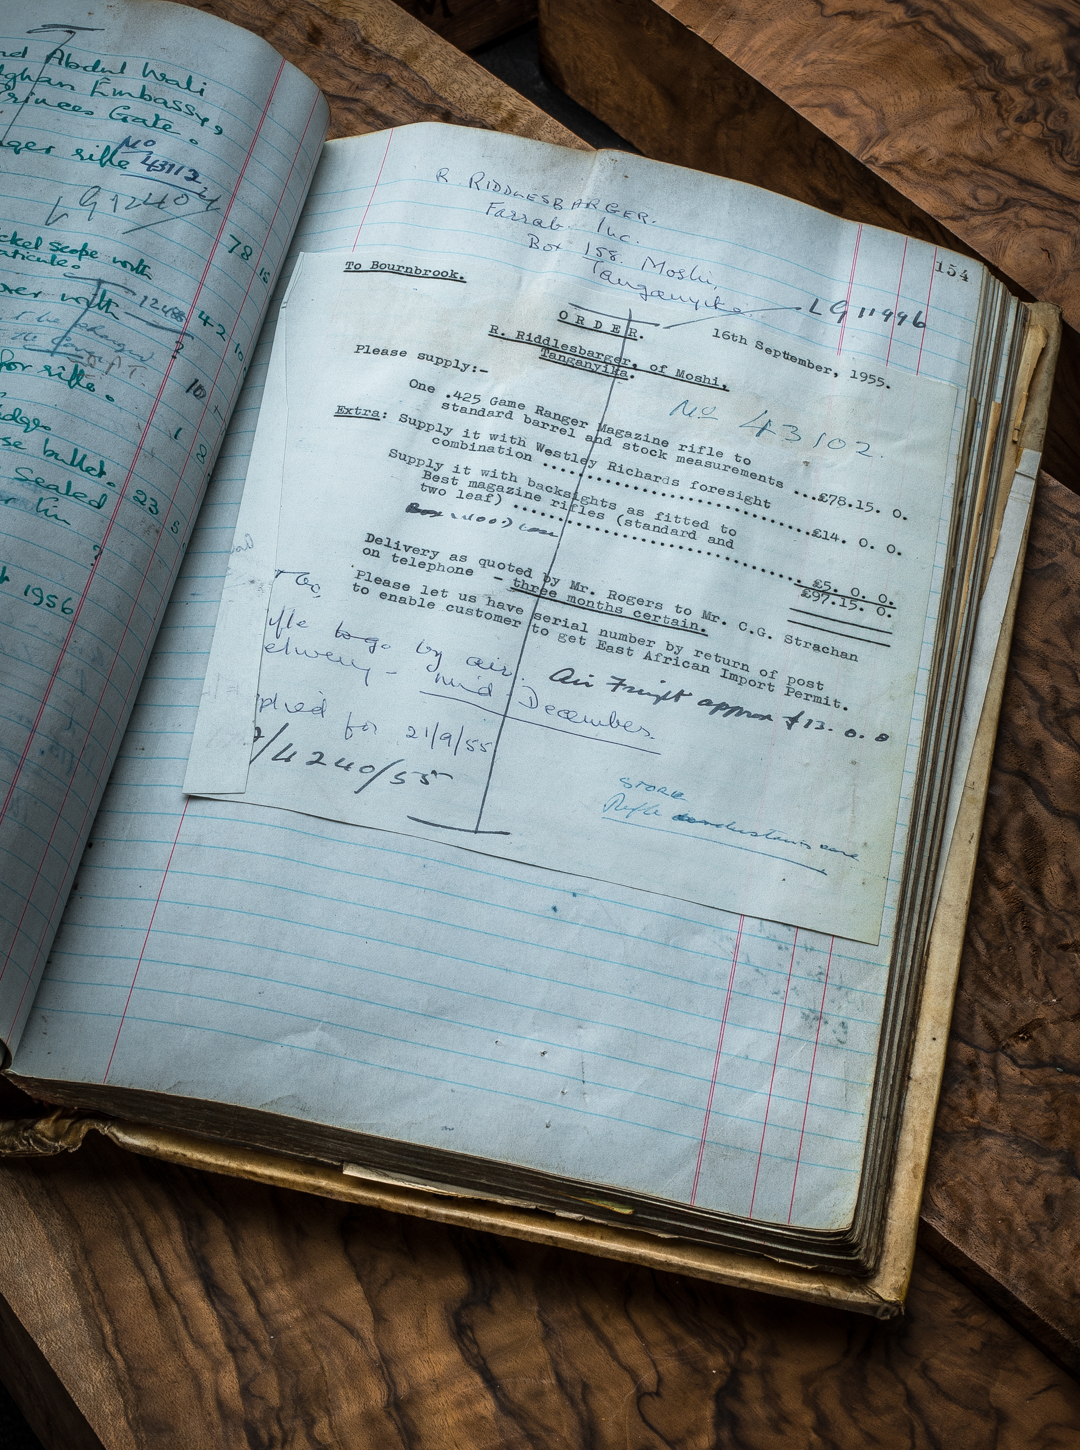 nd Abdul Wali
ghan Embassy,
Princes Gate.
ger rifle No 43112
LG 12404
78 15
cket scope with
aticule.
12488
42 10
?
for rifle.
10
1 8
dge
se bullet. 23 5
Sealed
r tin
?
1956
154
R RIDDLESBARGER.
Farrab. Inc.
Box 158. Moshi,
Tanganyika.
LG 11996
To Bournbrook.
ORDER.
16th September, 1955.
R. Riddlesbarger, of Moshi,
Tanganyika.
Please supply:-
No 43102.
One .425 Game Ranger Magazine rifle to
standard barrel and stock measurements ...£78.15. 0.
Extra: Supply it with Westley Richards foresight
combination ..............................£14. 0. 0.
Supply it with backsights as fitted to
Best magazine rifles (standard and
two leaf) ................................ £5. 0. 0.
£97.15. 0.
Delivery as quoted by Mr. Rogers to Mr. C.G. Strachan
on telephone - three months certain.
Please let us have serial number by return of post
to enable customer to get East African Import Permit.
ifle to go by air.
Air Freight approx £13. 0. 0
elivery - mid December
plied for 21/9/55
/4240/55
STORE
Rifle